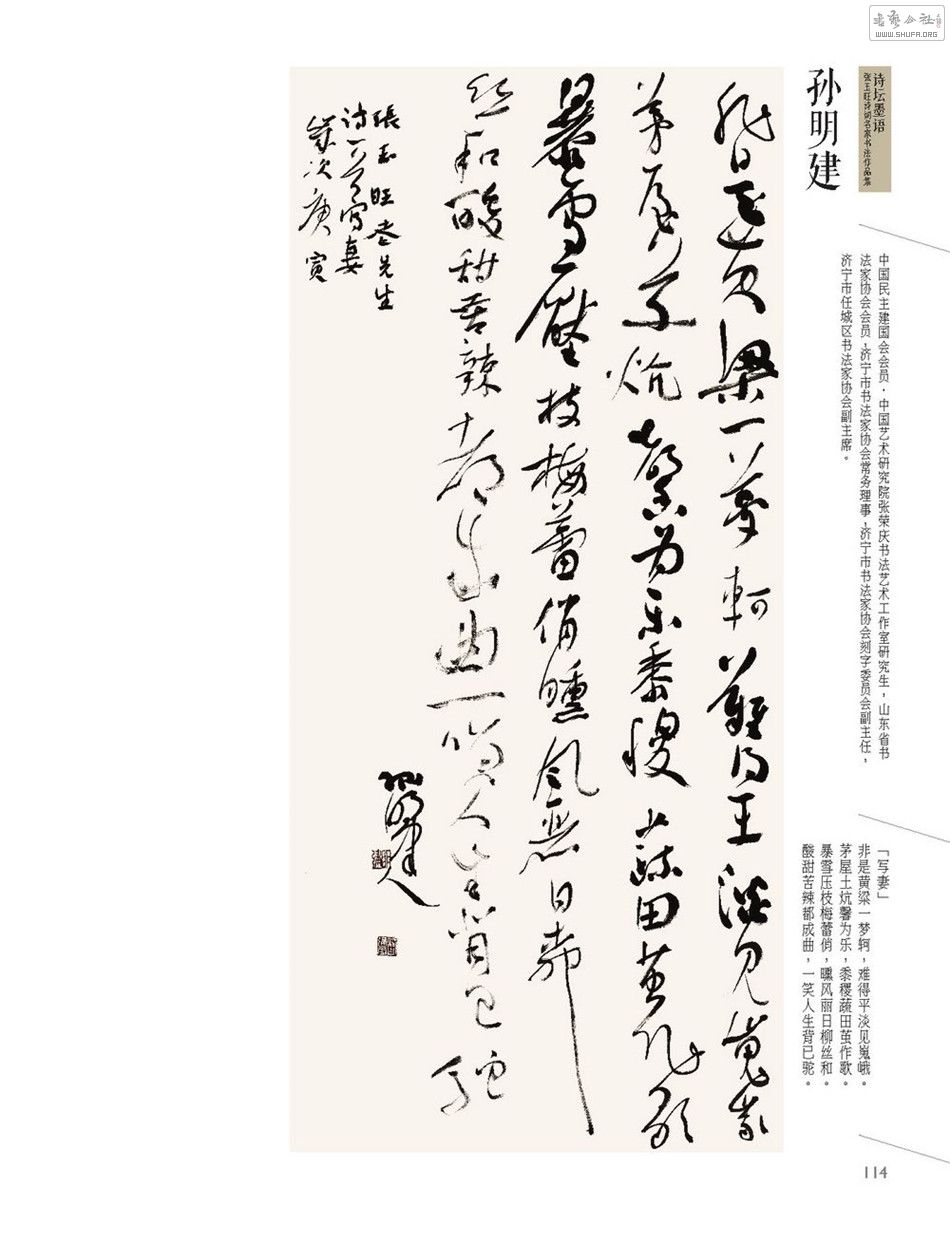 WWW.SHUFA.ORG
诗坛墨语
张玉旺诗词名家书法作品集
孙明建
中国民主建国会会员，中国艺术研究院张荣庆书法艺术工作室研究生，山东省书
法家协会会员，济宁市书法家协会常务理事，济宁市书法家协会刻字委员会副主任，
济宁市任城区书法家协会副主席。
「写妻」
非是黄粱一梦轲，难得平淡见嵬峨。
茅屋土炕馨为乐，黍稷蔬田茧作歌。
暴雪压枝梅蕾俏，曛风丽日柳丝和。
酸甜苦辣都成曲，一笑人生背已驼。
非是黄粱一梦轲難得平淡见嵬峩
茅屋土炕馨为乐黍稷蔬田茧作歌
暴雪壓枝梅蕾俏曛風丽日柳
丝和酸甜苦辣都成曲一笑人生背已驼
張玉旺老先生
诗一首写妻
歲次庚寅
孙明建
114